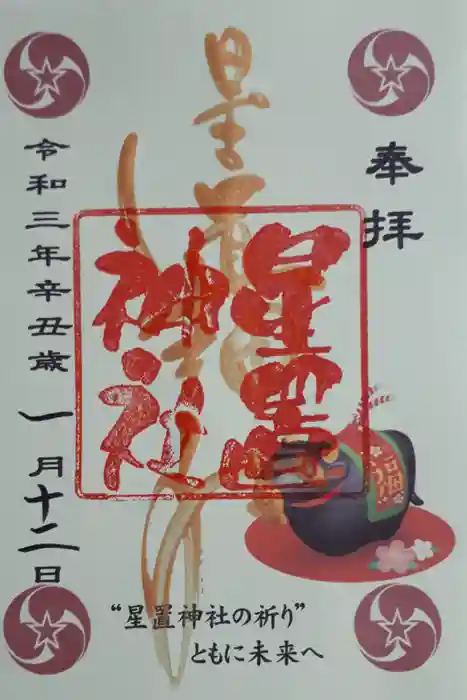 奉拝
星置神社
星置
神社
令和三年辛丑歳一月十二日
“星置神社の祈り”
ともに未来へ